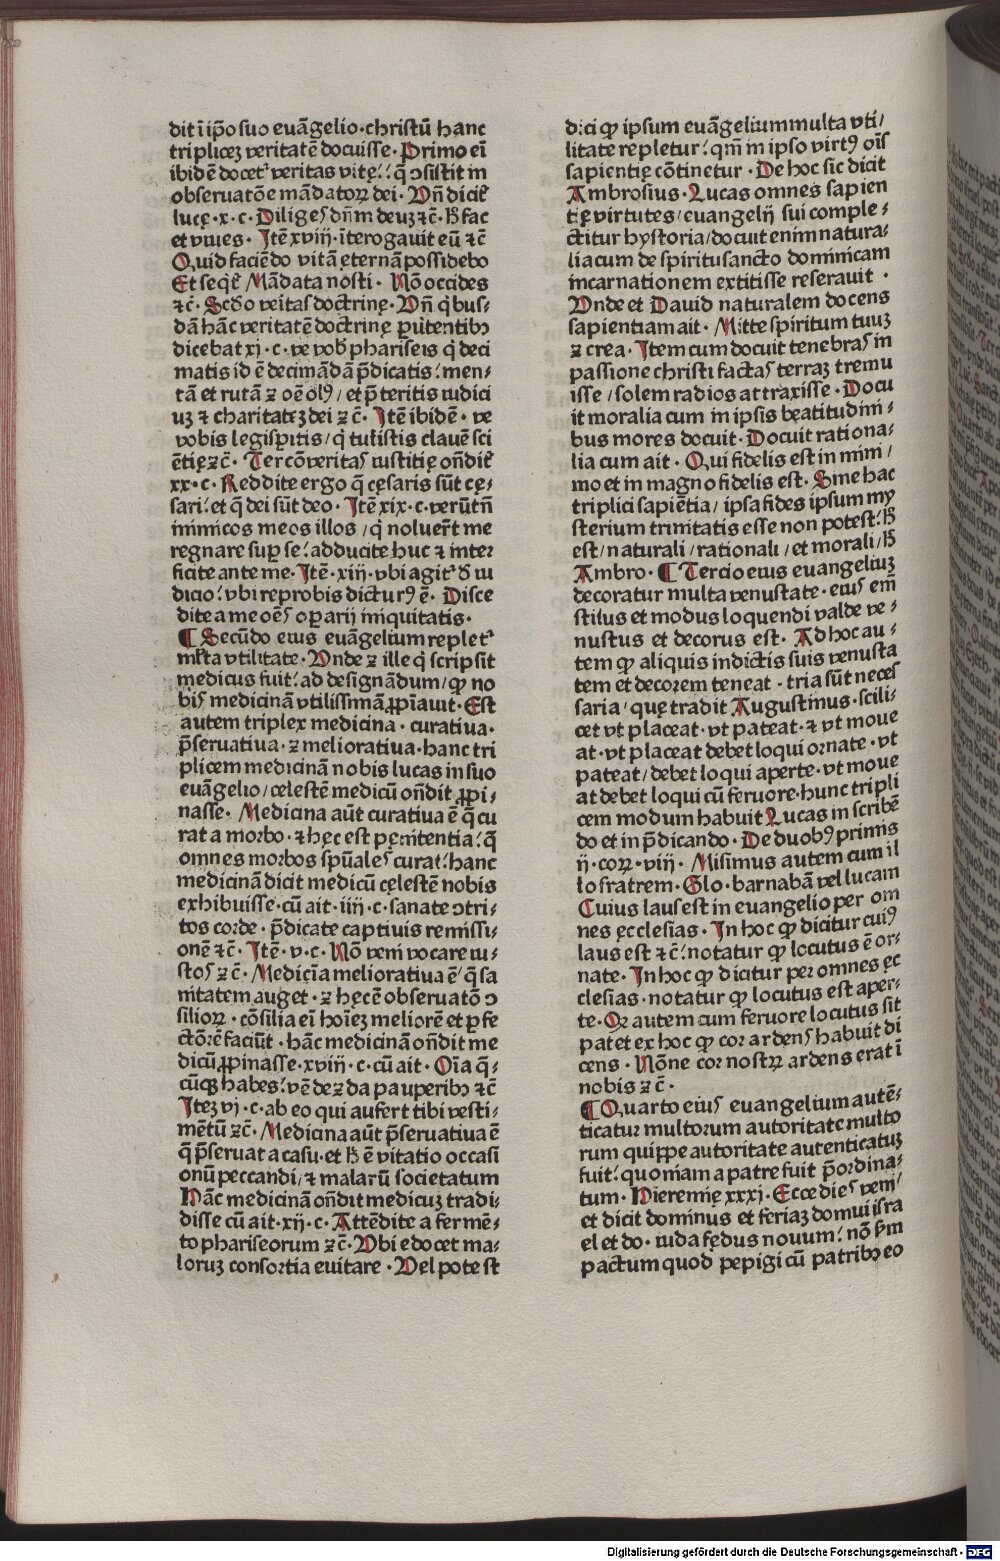 dit ī ip̄o suo euāgelio·christū hanc
triplicez veritatē docuisse·Primo eī
ibidē docetˀ veritas vitę:ˀ q̄ ↄsistit in
obseruatōe mādatoꝝ dei·Vn̄ dicit̄
lucę·x·c·Diliges dn̄m deuz ⁊c̄·H̄ fac
et viues·Itē xviij·īterogauit eū ⁊c̄
Quid faciēdo vitā ęternam possidebo
Et seqt̄ Mādata nosti·Nō occides
⁊c̄·Scd̄o veitas doctrinę·Vn̄ qͥbus-
dā hāc veritatē doctrinę ꝑuitentibꝫ
dicebat xj·c·ve vob̄ phariseis qͥ deci
matis id ē decimādā p̄dicatis:ˀ men-
tā et rutā ⁊ oē ol̄ꝰ/et p̄teritis iudici
uz ⁊ charitatez dei ⁊c̄·Itē ibidē·ve
vobis legisꝑitis/qͥ tulistis clauē sci
ētię ⁊c̄·Terc̄o veritas iustitię on̄dit̄
xx·c·Reddite ergo q̄ cęsaris sūt cę-
sari:ˀ et q̄ dei sūt deo·Itē xix·c·verūtn̄
inimicos meos illos/qͥ noluer̄t me
regnare suꝑ se:ˀ adducite huc ⁊ inter
ficite ante me·Itē·xiij·vbi agitˀ d̄ iu
dicio:ˀ vbi reprobis dicturꝰ ē·Disce
dite a me oēs oꝑarij iniquitatis·
¶ Secūdo eius euāgelium repletˀ
ml̄ta vtilitate·Vnde ⁊ ille qͥ scripsit
medicus fuit:ˀ ad designādum/ꝙ no
bis medicinā vtilissimā ꝓpīauit·Est
autem triplex medicina·curatiua·
p̄seruatiua·⁊ melioratiua·hanc tri
plicem medicinā nobis lucas in suo
euāgelio/cęlestē medicū on̄dit ꝓpi-
nasse·Medicina aūt curatiua ē q̄ cu
rat a morbo·⁊ hęc est pęnitentia:ˀ q̄
omnes morbos spūales curat:ˀ hanc
medicinā dicit medicū cęlestē nobis
exhibuisse·cū ait·iiij·c·sanate ↄtri-
tos corde·p̄dicate captiuis remissi-
onē ⁊c̄·Itē·v·c·Nō veni vocare iu-
stos ⁊c̄·Medicīa melioratiua ē q̄ sa
nitatem auget·⁊ hęc ē obseruatō ↄ
silioꝝ·cōsilia eī hoīez meliorē et ꝑfe
ctōrē faciūt·hāc medicinā on̄dit me
dicū ꝓpinasse·xviij·c·cū ait·Oīa q̄-
cūqꝫ habes:ˀ vēde ⁊ da pauperibꝫ ⁊c̄
Itez vj·c·ab eo qui aufert tibi vesti-
mētū ⁊c̄·Medicina aūt p̄seruatiua ē
q̄ p̄seruat a casu·et h̄ ē vitatio occasi
onū peccandi/⁊ malarū societatum
Hāc medicinā on̄dit medicuz tradi-
disse cū ait·xij·c·Attēdite a fermē-
to phariseorum ⁊c̄·Vbi edocet ma-
loruz consortia euitare·Vel potest
dici ꝙ ipsum euāgelium multa vti/
litate repletur:ˀ qm̄ in ipso virtꝰ oīs
sapientię cōtinetur·De hoc sic dicit
Ambrosius·Lucas omnes sapien
tię virtutes/euangelij sui comple-
ctitur hystoria/docuit enim natura-
lia cum de spiritusancto dominicam
incarnationem extitisse reserauit·
Vnde et Dauid naturalem docens
sapientiam ait·Mitte spiritum tuuz
⁊ crea·Item cum docuit tenebras in
passione christi factas terraz tremu
isse/solem radios attraxisse·Docu
it moralia cum in ipsis beatitudini-
bus mores docuit·Docuit rationa-
lia cum ait·Qui fidelis est in mini/
mo et in magno fidelis est·Sine hac
triplici sapiētia/ipsa fides ipsum my
sterium trinitatis esse non potest:ˀ h̄
est/naturali/rationali/et morali/h̄
Ambro·¶ Tercio eius euangeliuz
decoratur multa venustate·eius em̄
stilus et modus loquendi valde ve-
nustus et decorus est·Ad hoc au-
tem ꝙ aliquis in dictis suis venusta
tem et decorem teneat·tria sūt neces
saria/quę tradit Augustinus·scili-
cet vt placeat·vt pateat·⁊ vt moue
at·vt placeat debet loqui ornate·vt
pateat/debet loqui aperte·vt moue
at debet loqui cū feruore·hunc tripli
cem modum habuit Lucas in scribē
do et in p̄dicando·De duobꝰ primis
ij·coꝝ·viij·Misimus autem cum il
lo fratrem·Glo·barnabā vel lucam
Cuius laus est in euangelio per om
nes ęcclesias·In hoc ꝙ dicitur cuiꝰ
laus est ⁊c̄:ˀ notatur ꝙ locutus ē or-
nate·In hoc ꝙ dicitur per omnes ęc
clesias·notatur ꝙ locutus est aper-
te·Qꝛ autem cum feruore locutus sit
patet ex hoc ꝙ cor ardens habuit di
cens·Nōne cor nostꝝ ardens erat ī
nobis ⁊c̄·
¶ Quarto eius euangelium autē-
ticatur multorum autoritate multo
rum quippe autoritate autenticatuz
fuit:ˀ quoniam a patre fuit p̄ordina-
tum·Hieremię xxxj·Ecce dies veni/
et dicit dominus et feriaz domui isra
el et do·iuda fędus nouum:ˀ nō ẜm
pactum quod pepigi cū patribꝫ eo
Digitalisierung gefördert durch die Deutsche Forschungsgemeinschaft - DFG